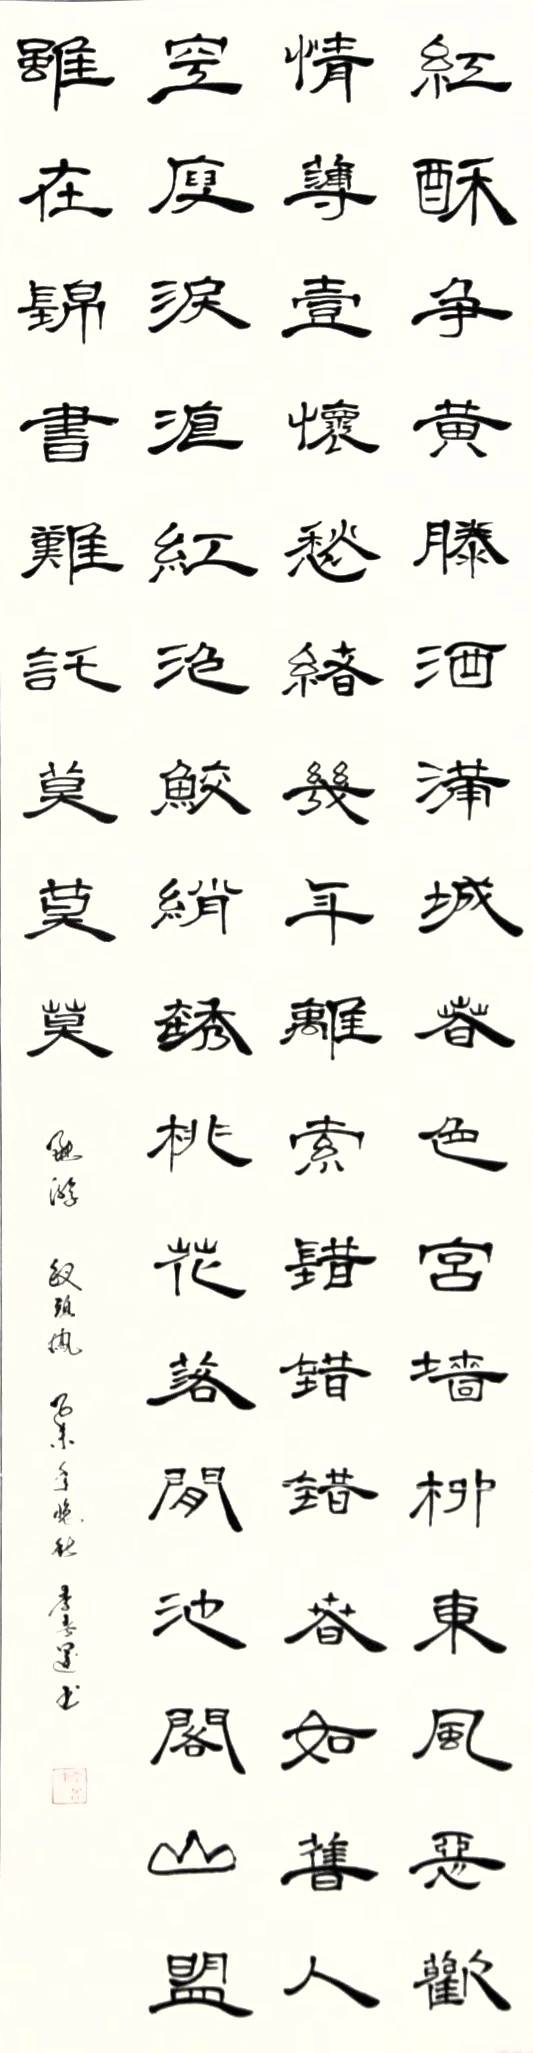 紅酥争黄滕酒滿城春色宮墻柳東風惡歡
情薄壹懷愁緒幾年離索錯錯錯春如舊人
空廋淚痕紅浥鮫綃銹桃花落閒池閣山盟
雖在錦書難託莫莫莫
陸游 釵頭鳳 乙未年晚秋 李書